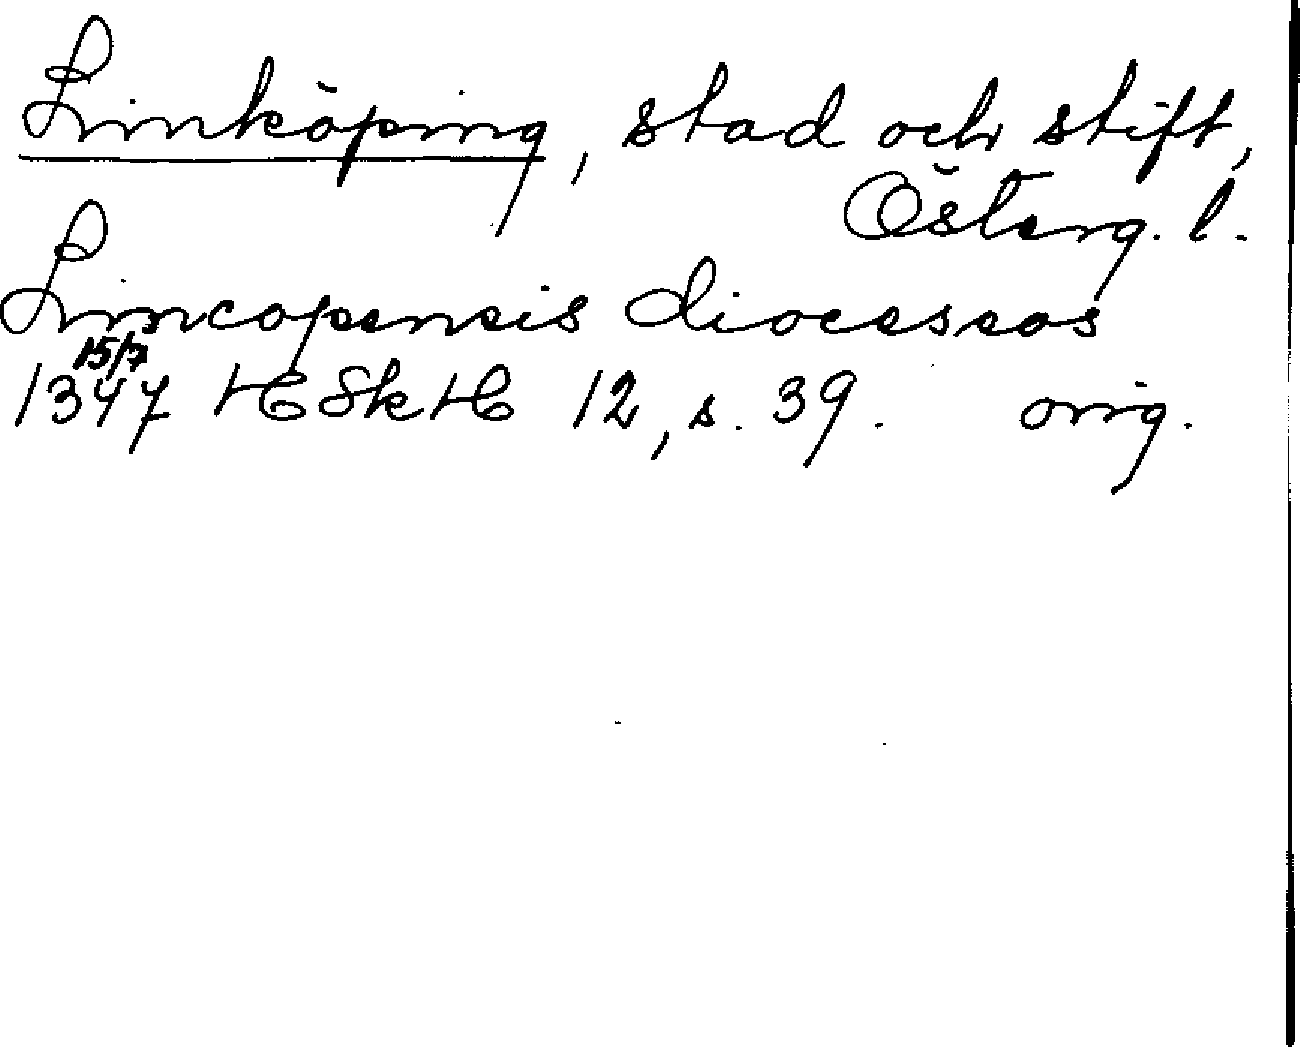 Linköping, stad och stift,
Österg. l.
Lincopensis dioceseos
15/7
1347 HSkH 12, s. 39. orig.